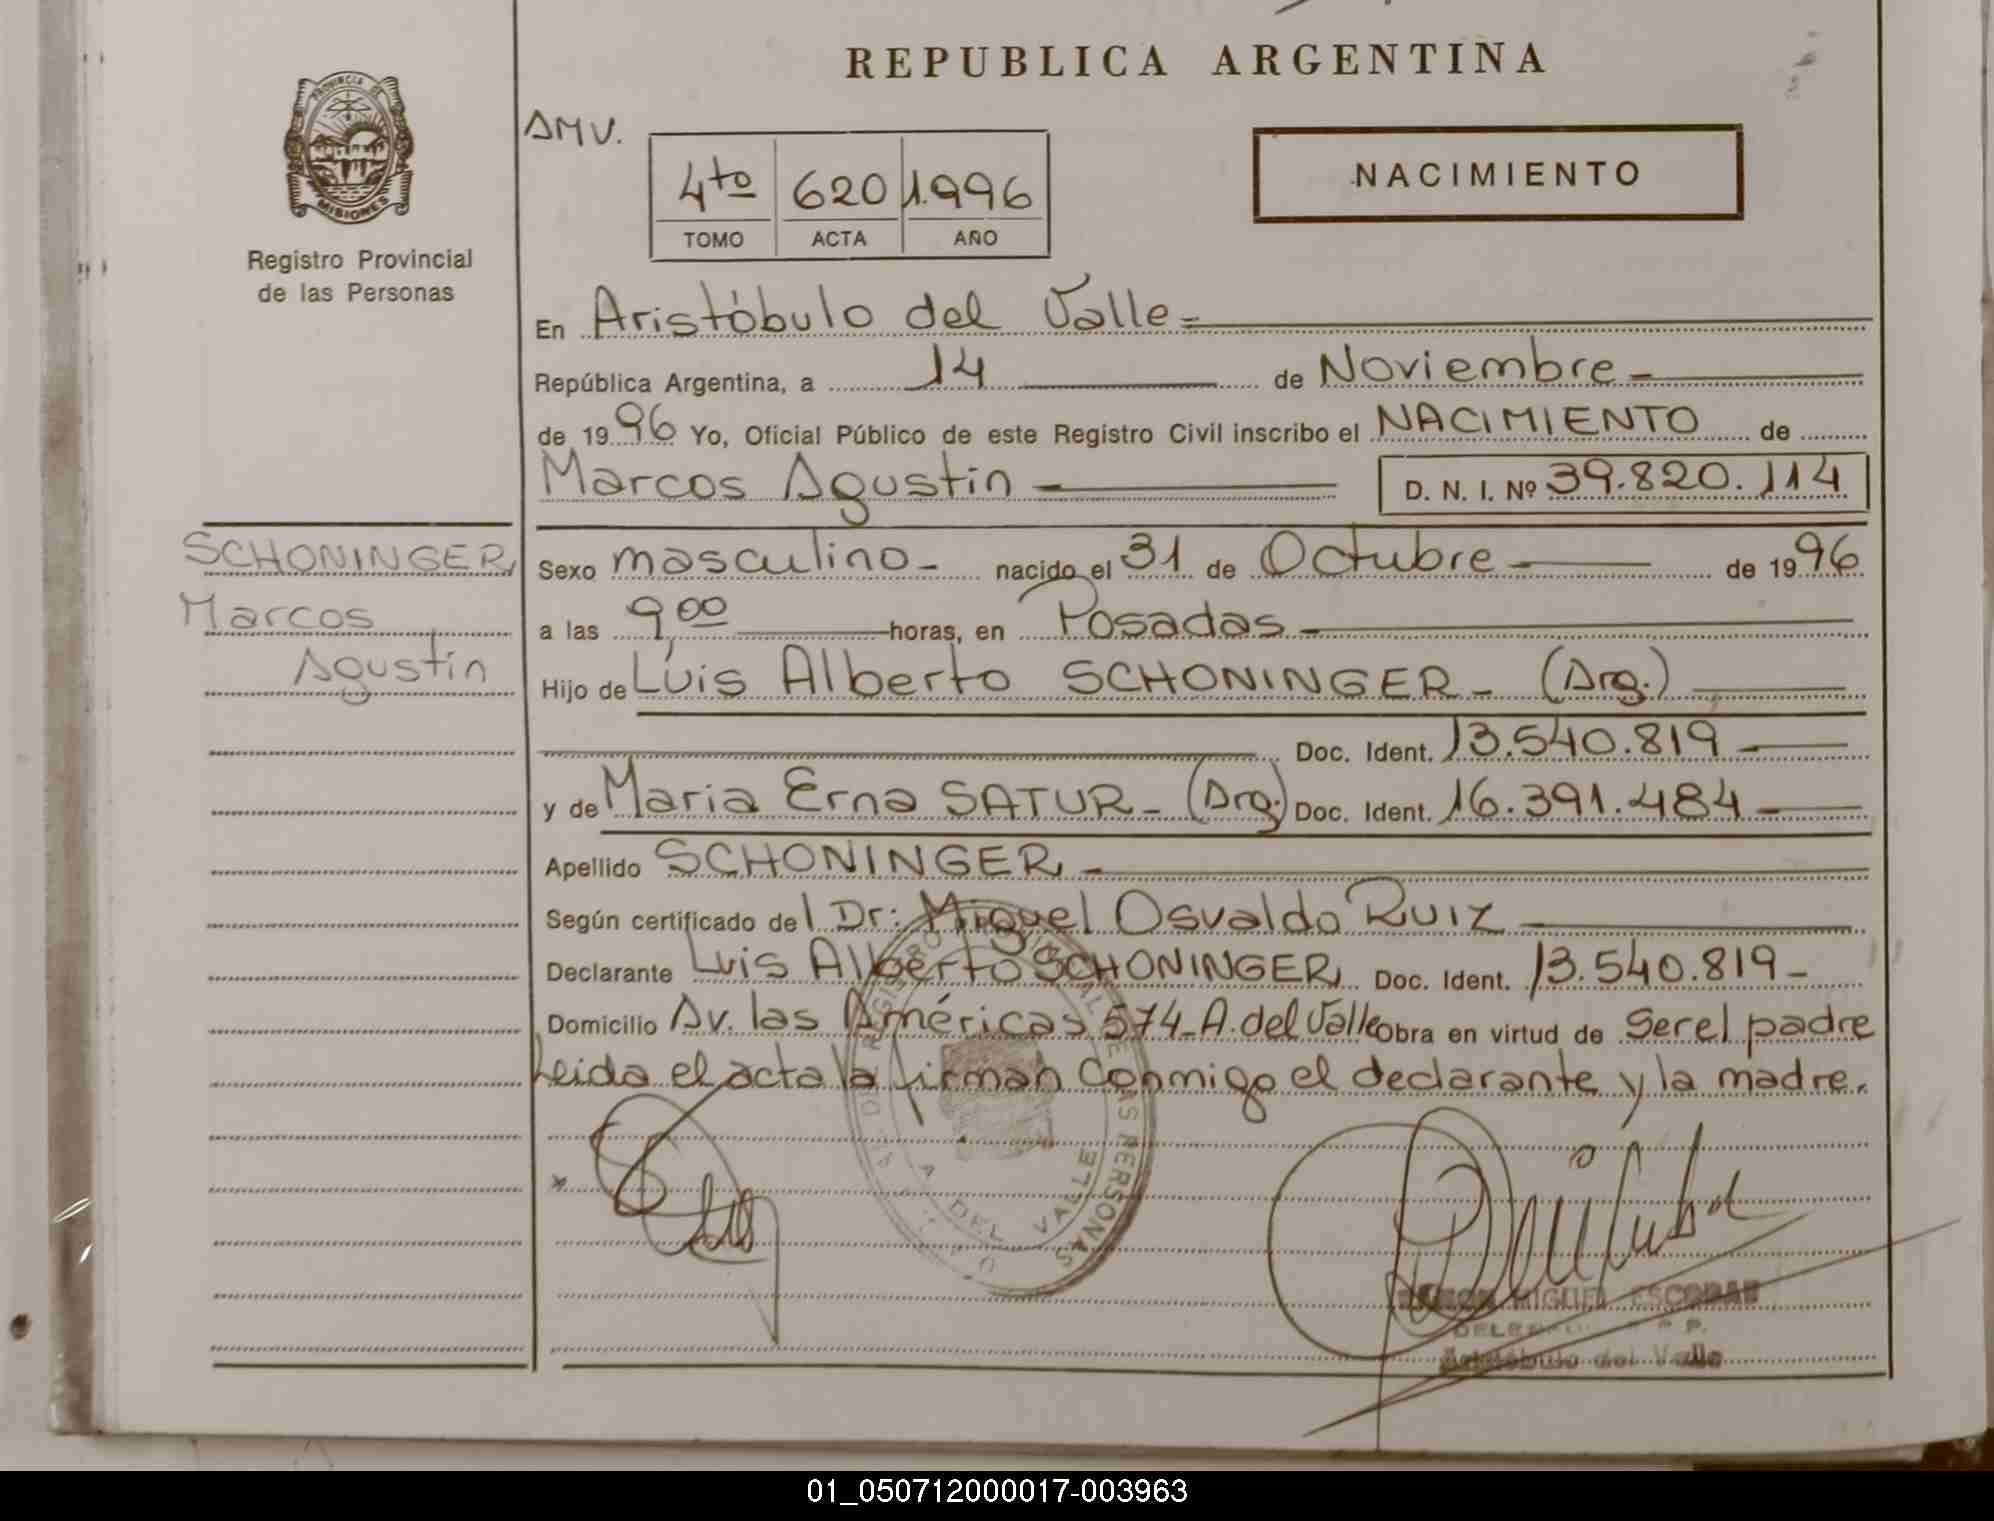 REPUBLICA ARGENTINA
PROVINCIA DE
MISIONES
Registro Provincial
de las Personas
AMV.
4to 620 1.996
TOMO ACTA AÑO
NACIMIENTO
En Aristóbulo del Valle=
República Argentina, a 14 de Noviembre
de 1996 Yo, Oficial Público de este Registro Civil inscribo el NACIMIENTO de
Marcos Agustin D. N. I. Nº 39.820.114
SCHONINGER
Marcos
Agustín
Sexo masculino nacido el 31 de Octubre de 1996
a las 9,00 horas, en Posadas
Hijo de Luis Alberto SCHONINGER (Arg.)
Doc. Ident. 13.540.819
y de Maria Erna SATUR (Arg.) Doc. Ident. 16.391.484
Apellido SCHONINGER
Según certificado del Dr: Miguel Osvaldo Ruiz
Declarante Luis Alberto SCHONINGER Doc. Ident. 13.540.819
Domicilio Av. las Américas 574 A. del Valle Obra en virtud de Ser el padre
Leida el acta la firman Conmigo el declarante y la madre.
A. DEL VALLE
PERSONAS
MIGUEL ESCOBAR
Aristóbulo del Valle
01_050712000017-003963